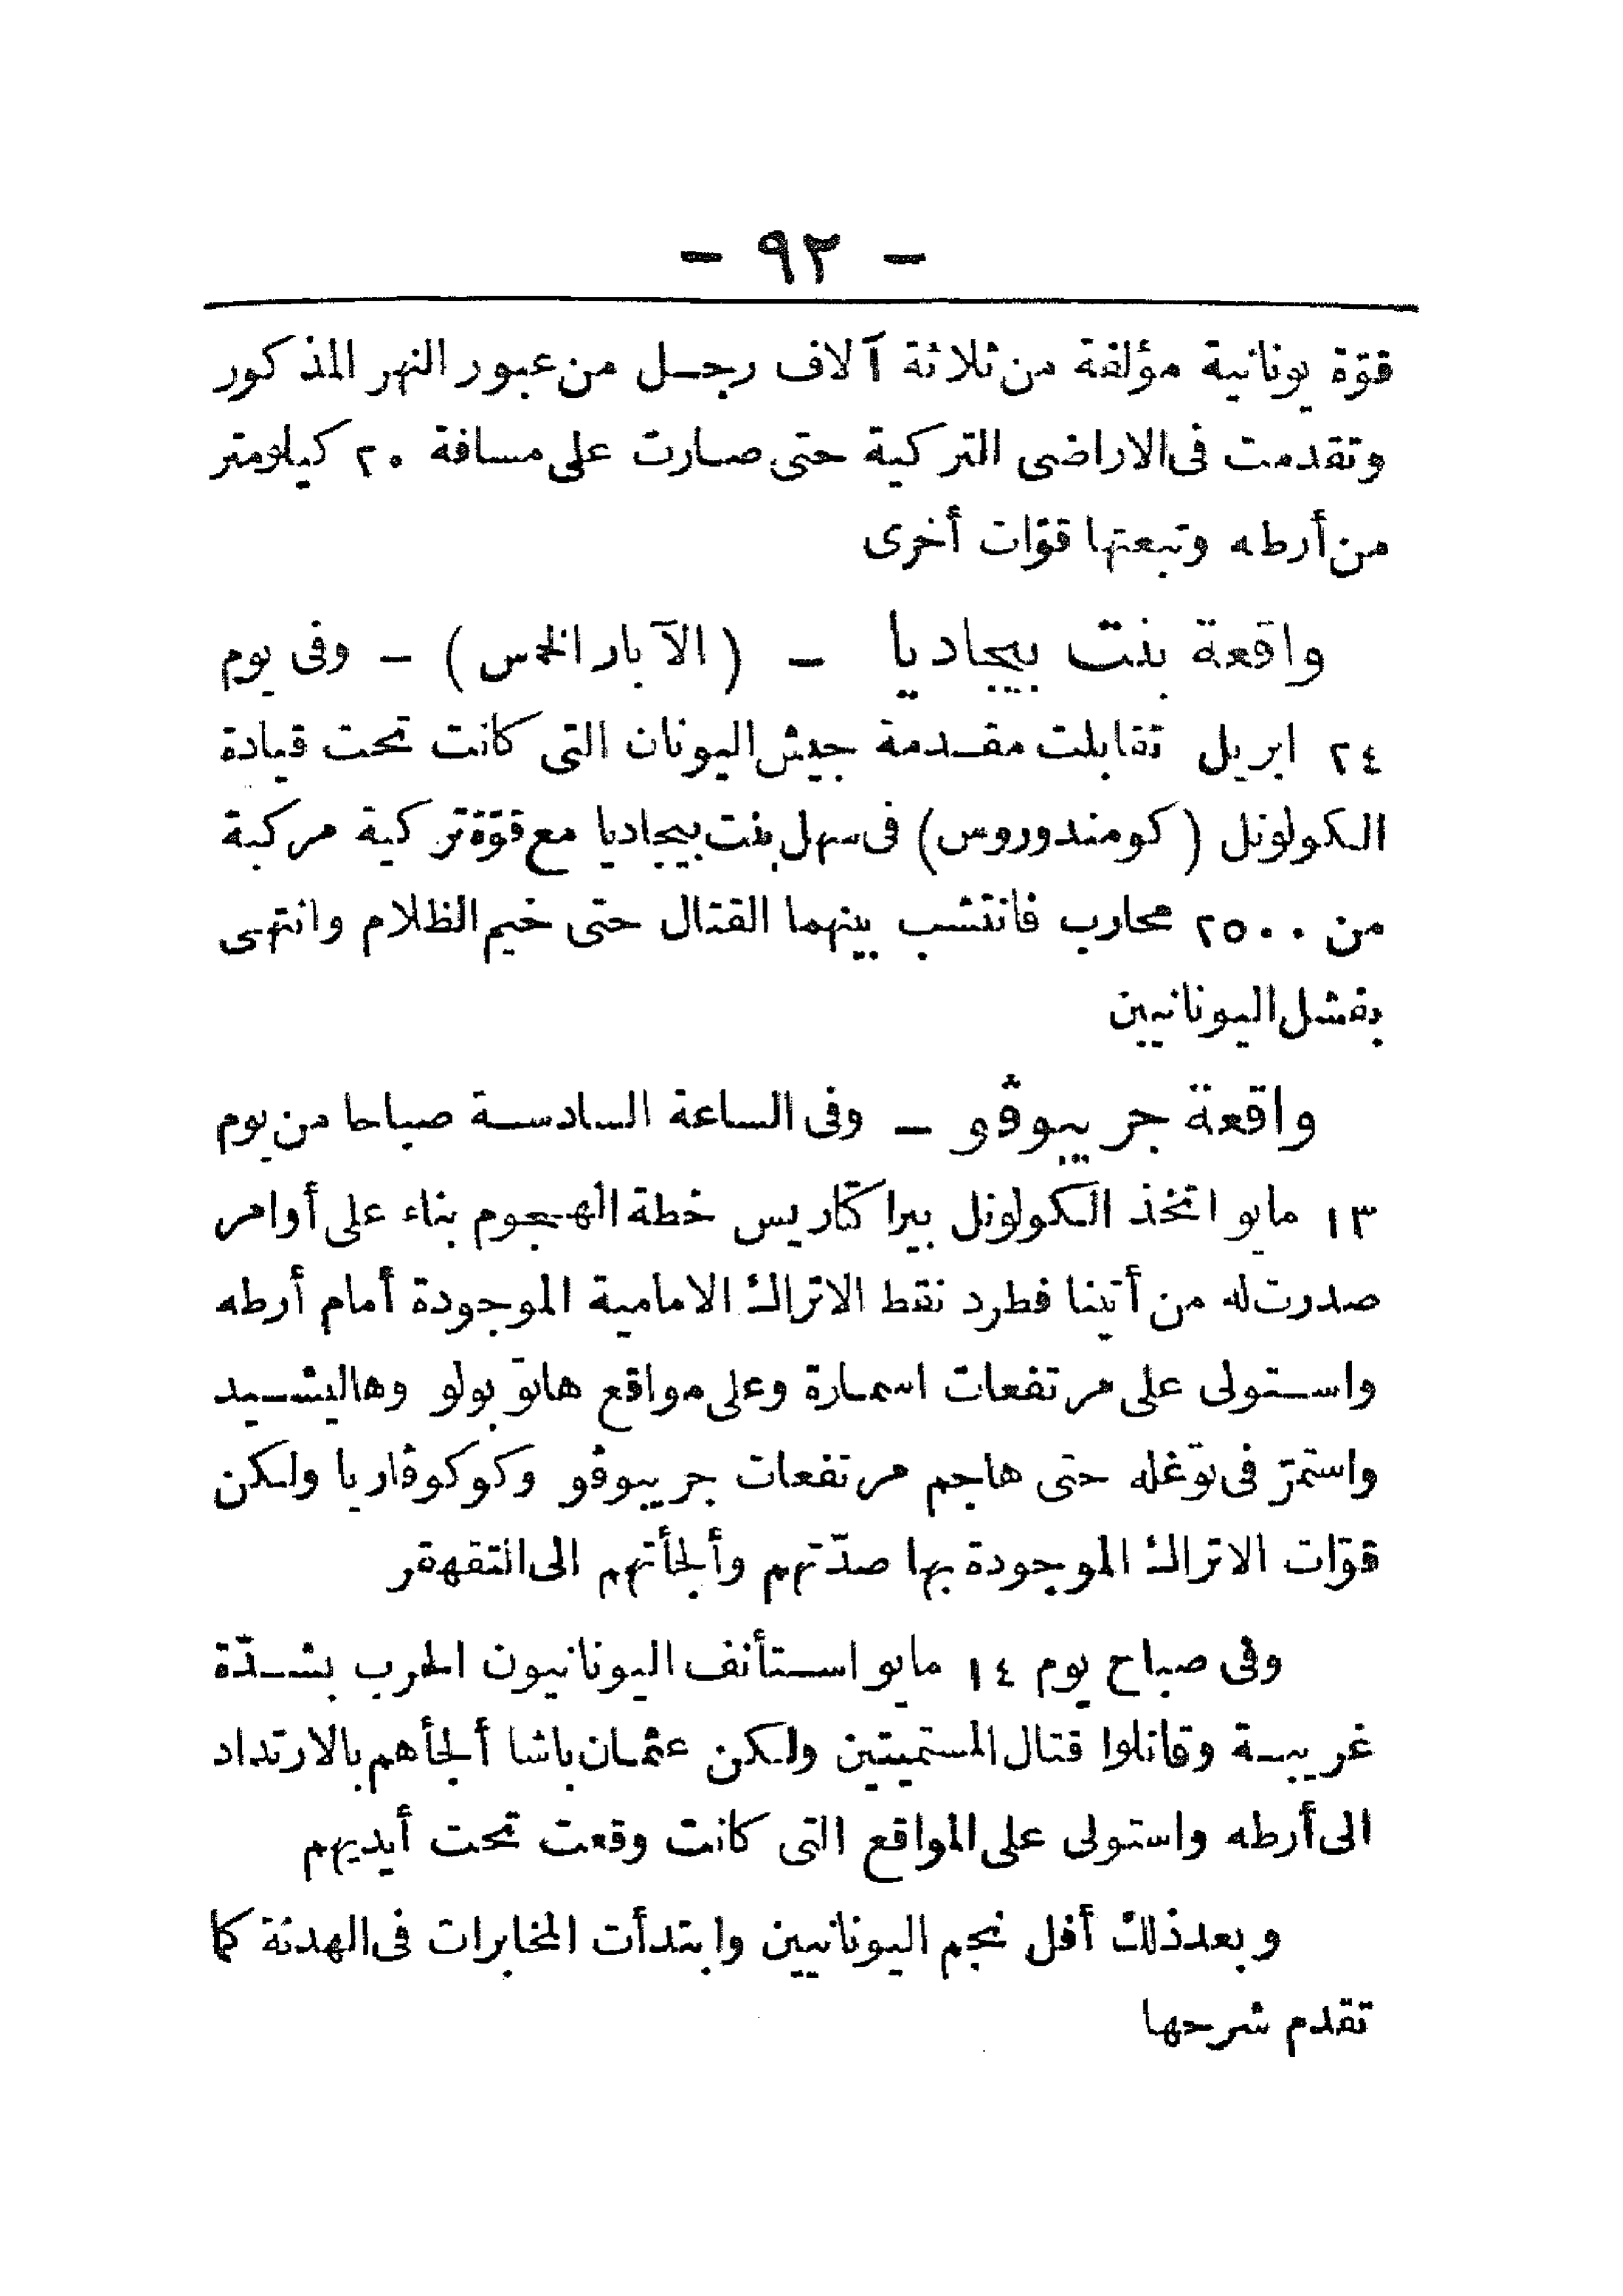 - ٩٢ -
قوّة يونانية مؤلفة من ثلاثة آلاف رجل من عبور النهر المذكور
وتقدمت فى الاراضى التركية حتى صارت على مسافة ٢٠ كيلومتر
من أرطه وتبعتها قوّات أخرى
واقعة بنت بيجاديا - (الآبار الخمس) - وفى يوم
٢٤ ابريل تقابلت مقدمة جيش اليونان التى كانت تحت قيادة
الكولونل (كومندوروس) فى سهل بنت بيجاديا مع قوّة تركية مركبة
من ٢٥٠٠ محارب فانتشب بينهما القتال حتى خيم الظلام وانتهى
بفشل اليونانيين
واقعة جريبوڤو - وفى الساعة السادسة صباحا من يوم
١٣ مايو اتخذ الكولونل بيراكتاريس خطة الهجوم بناء على أوامر
صدرت له من أتينا فطرد نقط الاتراك الامامية الموجودة أمام أرطه
واستولى على مرتفعات اسمارة وعلى مواقع هانوّبولو وهاليشيد
واستمرّ فى توغله حتى هاجم مرتفعات جريبوڤو وكوكوڤاريا ولكن
قوّات الاتراك الموجودة بها صدّتهم وألجأتهم الى التقهقر
وفى صباح يوم ١٤ مايو استأنف اليونانيون الحرب بشدّة
غريبة وقاتلوا قتال المستميتين ولكن عثمان باشا ألجأهم بالارتداد
الى أرطه واستولى على المواقع التى كانت وقعت تحت أيديهم
وبعد ذلك أفل نجم اليونانيين وابتدأت المخابرات فى الهدنة كما
تقدم شرحها